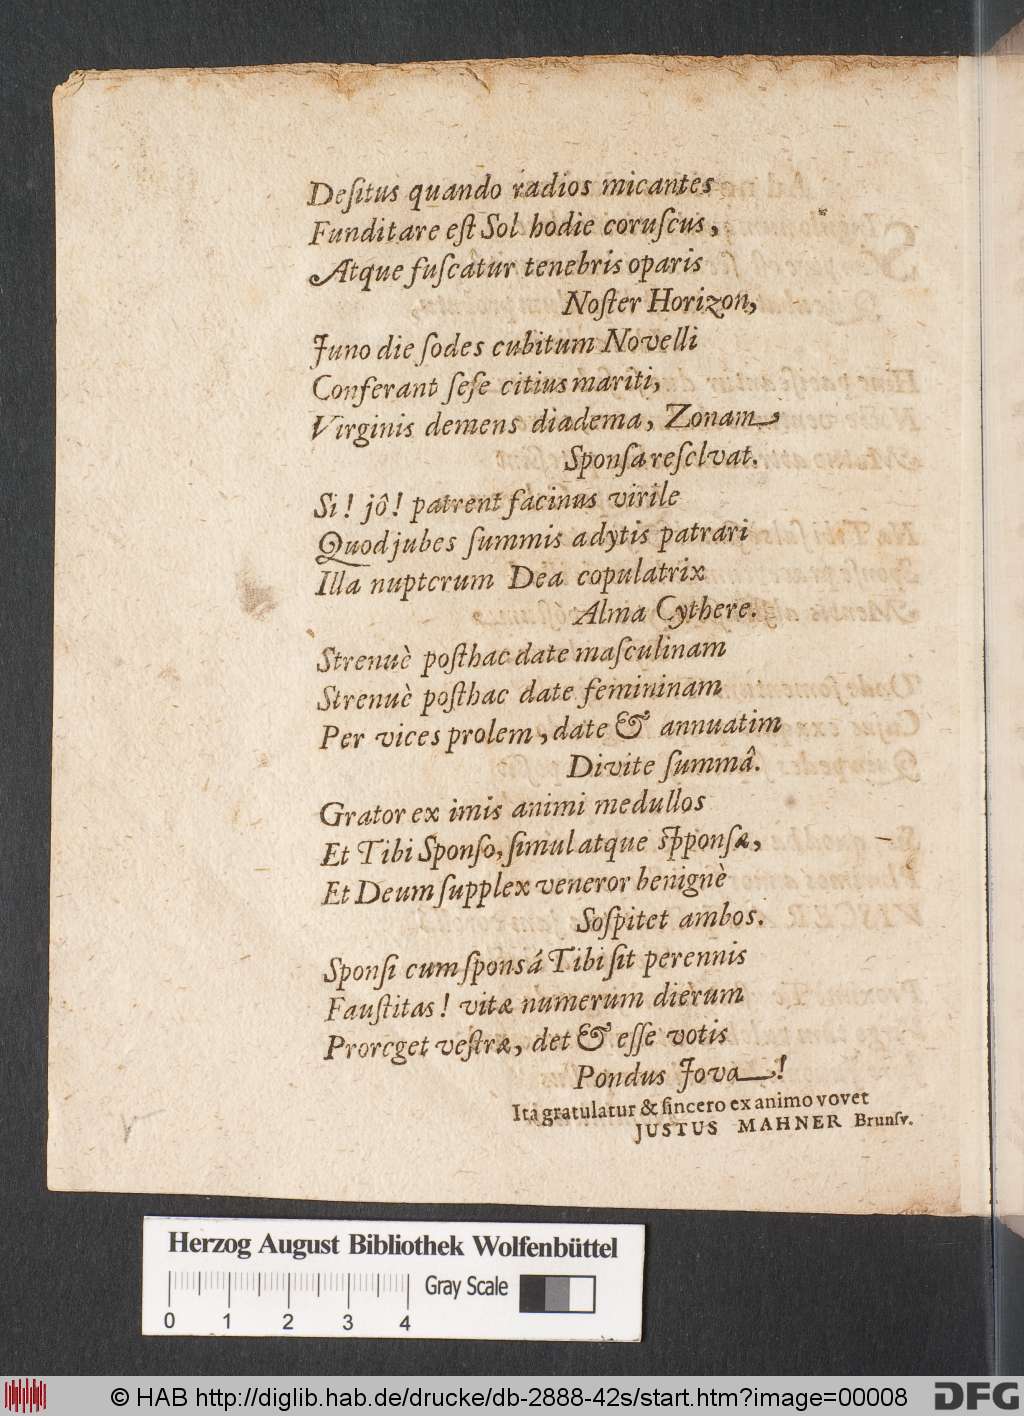 Deſitus quando radios micantes
Funditare eſt Sol hodie coruſcus,
Atque fuſcatur tenebris oparis
Noſter Horizon,
Juno die ſodes cubitum Novelli
Conferant ſeſe citius mariti,
Virginis demens diadema, Zonam
Sponſa reſclvat.
Si! jô! patrent facinus virile
Quod jubes ſummis adytis patrari
Illa nuptcrum Dea copulatrix
Alma Cythere.
Strenuè poſthac date maſculinam
Strenuè poſthac date femininam
Per vices prolem, date & annuatim
Divite ſummâ.
Grator ex imis animi medullos
Et Tibi Sponſo, ſimul atque ſponſæ,
Et Deum ſupplex veneror benignè
Soſpitet ambos.
Sponſi cum ſponsâ Tibi ſit perennis
Fauſtitas! vitæ numerum dierum
Prorcget veſtræ, det & eſſe votis
Pondus Jova!
Ita gratulatur & ſincero ex animo vovet
JUSTUS MAHNER Brunſv.
Herzog August Bibliothek Wolfenbüttel
Gray Scale
0 1 2 3 4
© HAB http://diglib.hab.de/drucke/db-2888-42s/start.htm?image=00008
DFG